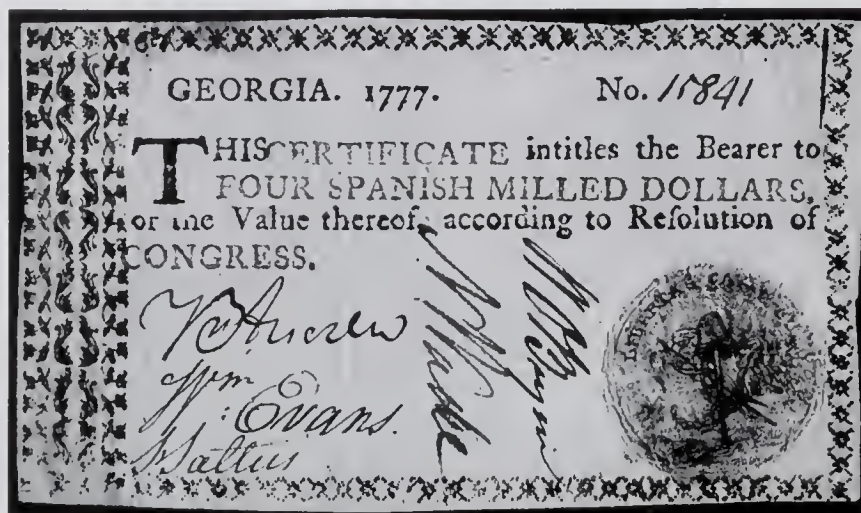 GEORGIA. 1777. No. 15841
THIS CERTIFICATE intitles the Bearer to
FOUR SPANISH MILLED DOLLARS,
or the Value thereof, according to Reſolution of
CONGRESS.
Wm
Evans.
N Wade